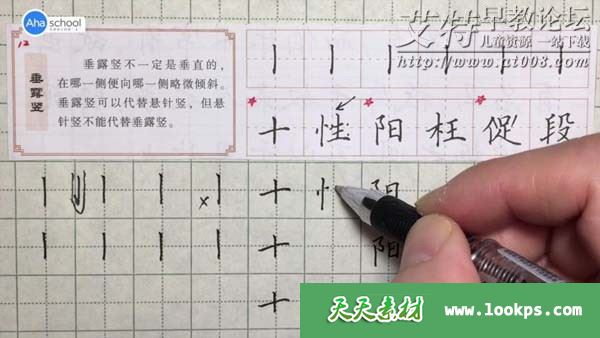 Aha school
艾特早教论坛
儿童资源 一站下载
http://www.at008.com
12
垂露竖
垂露竖不一定是垂直的，
在哪一侧便向哪一侧略微倾斜。
垂露竖可以代替悬针竖，但悬
针竖不能代替垂露竖。
十 性 阳 枉 促 段
十 忄 阳
十 阳
十
天天素材 www.lookps.com